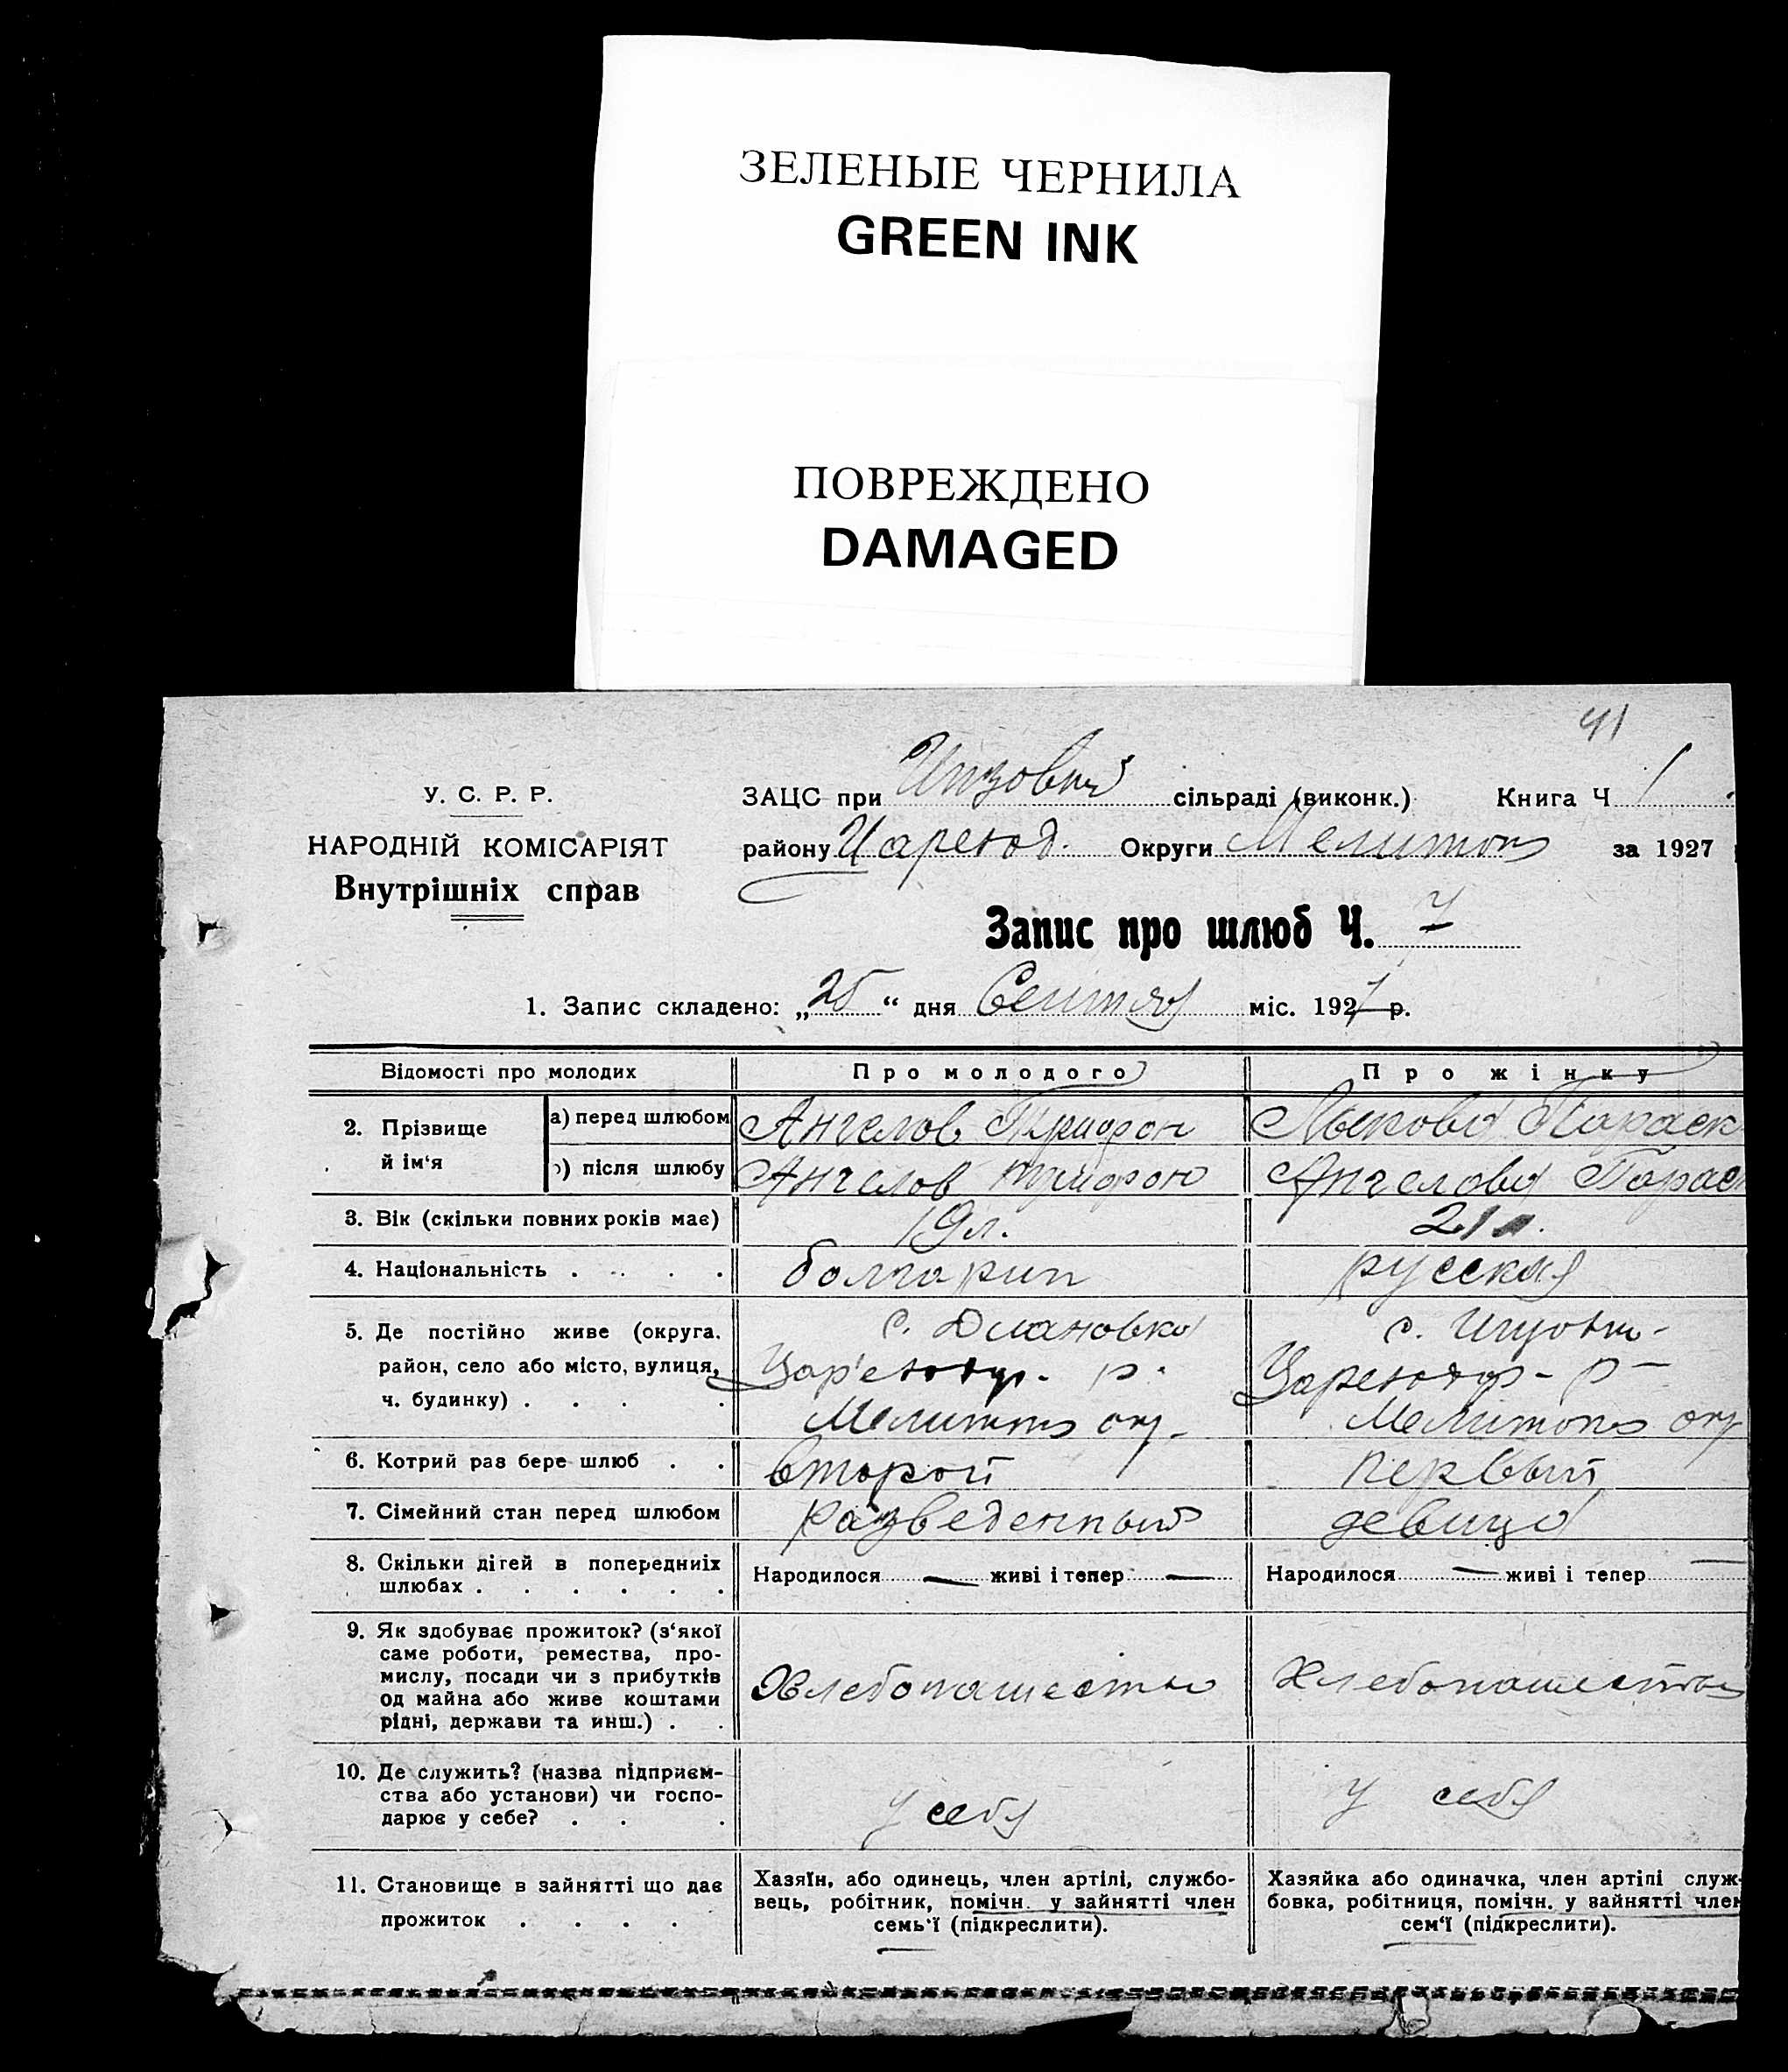 ЗЕЛЕНЫЕ ЧЕРНИЛА
GREEN INK
ПОВРЕЖДЕНО
DAMAGED
41
У. С. Р. Р.
НАРОДНІЙ КОМІСАРІЯТ
Внутрішніх справ
ЗАЦС при сільраді (виконк.) Книга Ч 1
району Округи Мелитоп за 1927
Запис про шлюб Ч. 7
1. Запис складено: „25“ дня Сентя міс. 1927 р.
Відомості про молодих Про молодого Про жінку
2. Прізвище й ім‘я
а) перед шлюбом Ангелов Трифон Параск
) після шлюбу Ангелов Трифон Ангелова Параск
3. Вік (скільки повних років має) 19 л. 21 л.
4. Національність . . . . болгарин русская
5. Де постійно живе (округа, с. с.
район, село або місто, вулиця, р. р
ч. будинку) . . . . Мелитоп окр Мелитоп окр
6. Котрий раз бере шлюб . . второй первый
7. Сімейний стан перед шлюбом разведенный девица
8. Скільки дітей в попередниіх
шлюбах . . . . . . Народилося — живі і тепер — Народилося — живі і тепер —
9. Як здобуває прожиток? (з‘якої
саме роботи, ремества, про-
мислу, посади чи з прибутків
од майна або живе коштами
рідні, держави та инш.) . .
Хлебопашество Хлебопашество
10. Де служить? (назва підприєм-
ства або установи) чи госпо-
дарює у себе? . . .
у себя у себя
11. Становище в зайнятті що дає
прожиток . . . .
Хазяїн, або одинець, член артілі, службо-
вець, робітник, помічн. у зайнятті член
семь‘ї (підкреслити).
Хазяйка або одиначка, член артілі служ-
бовка, робітниця, помічн. у зайнятті член
сем‘ї (підкреслити).